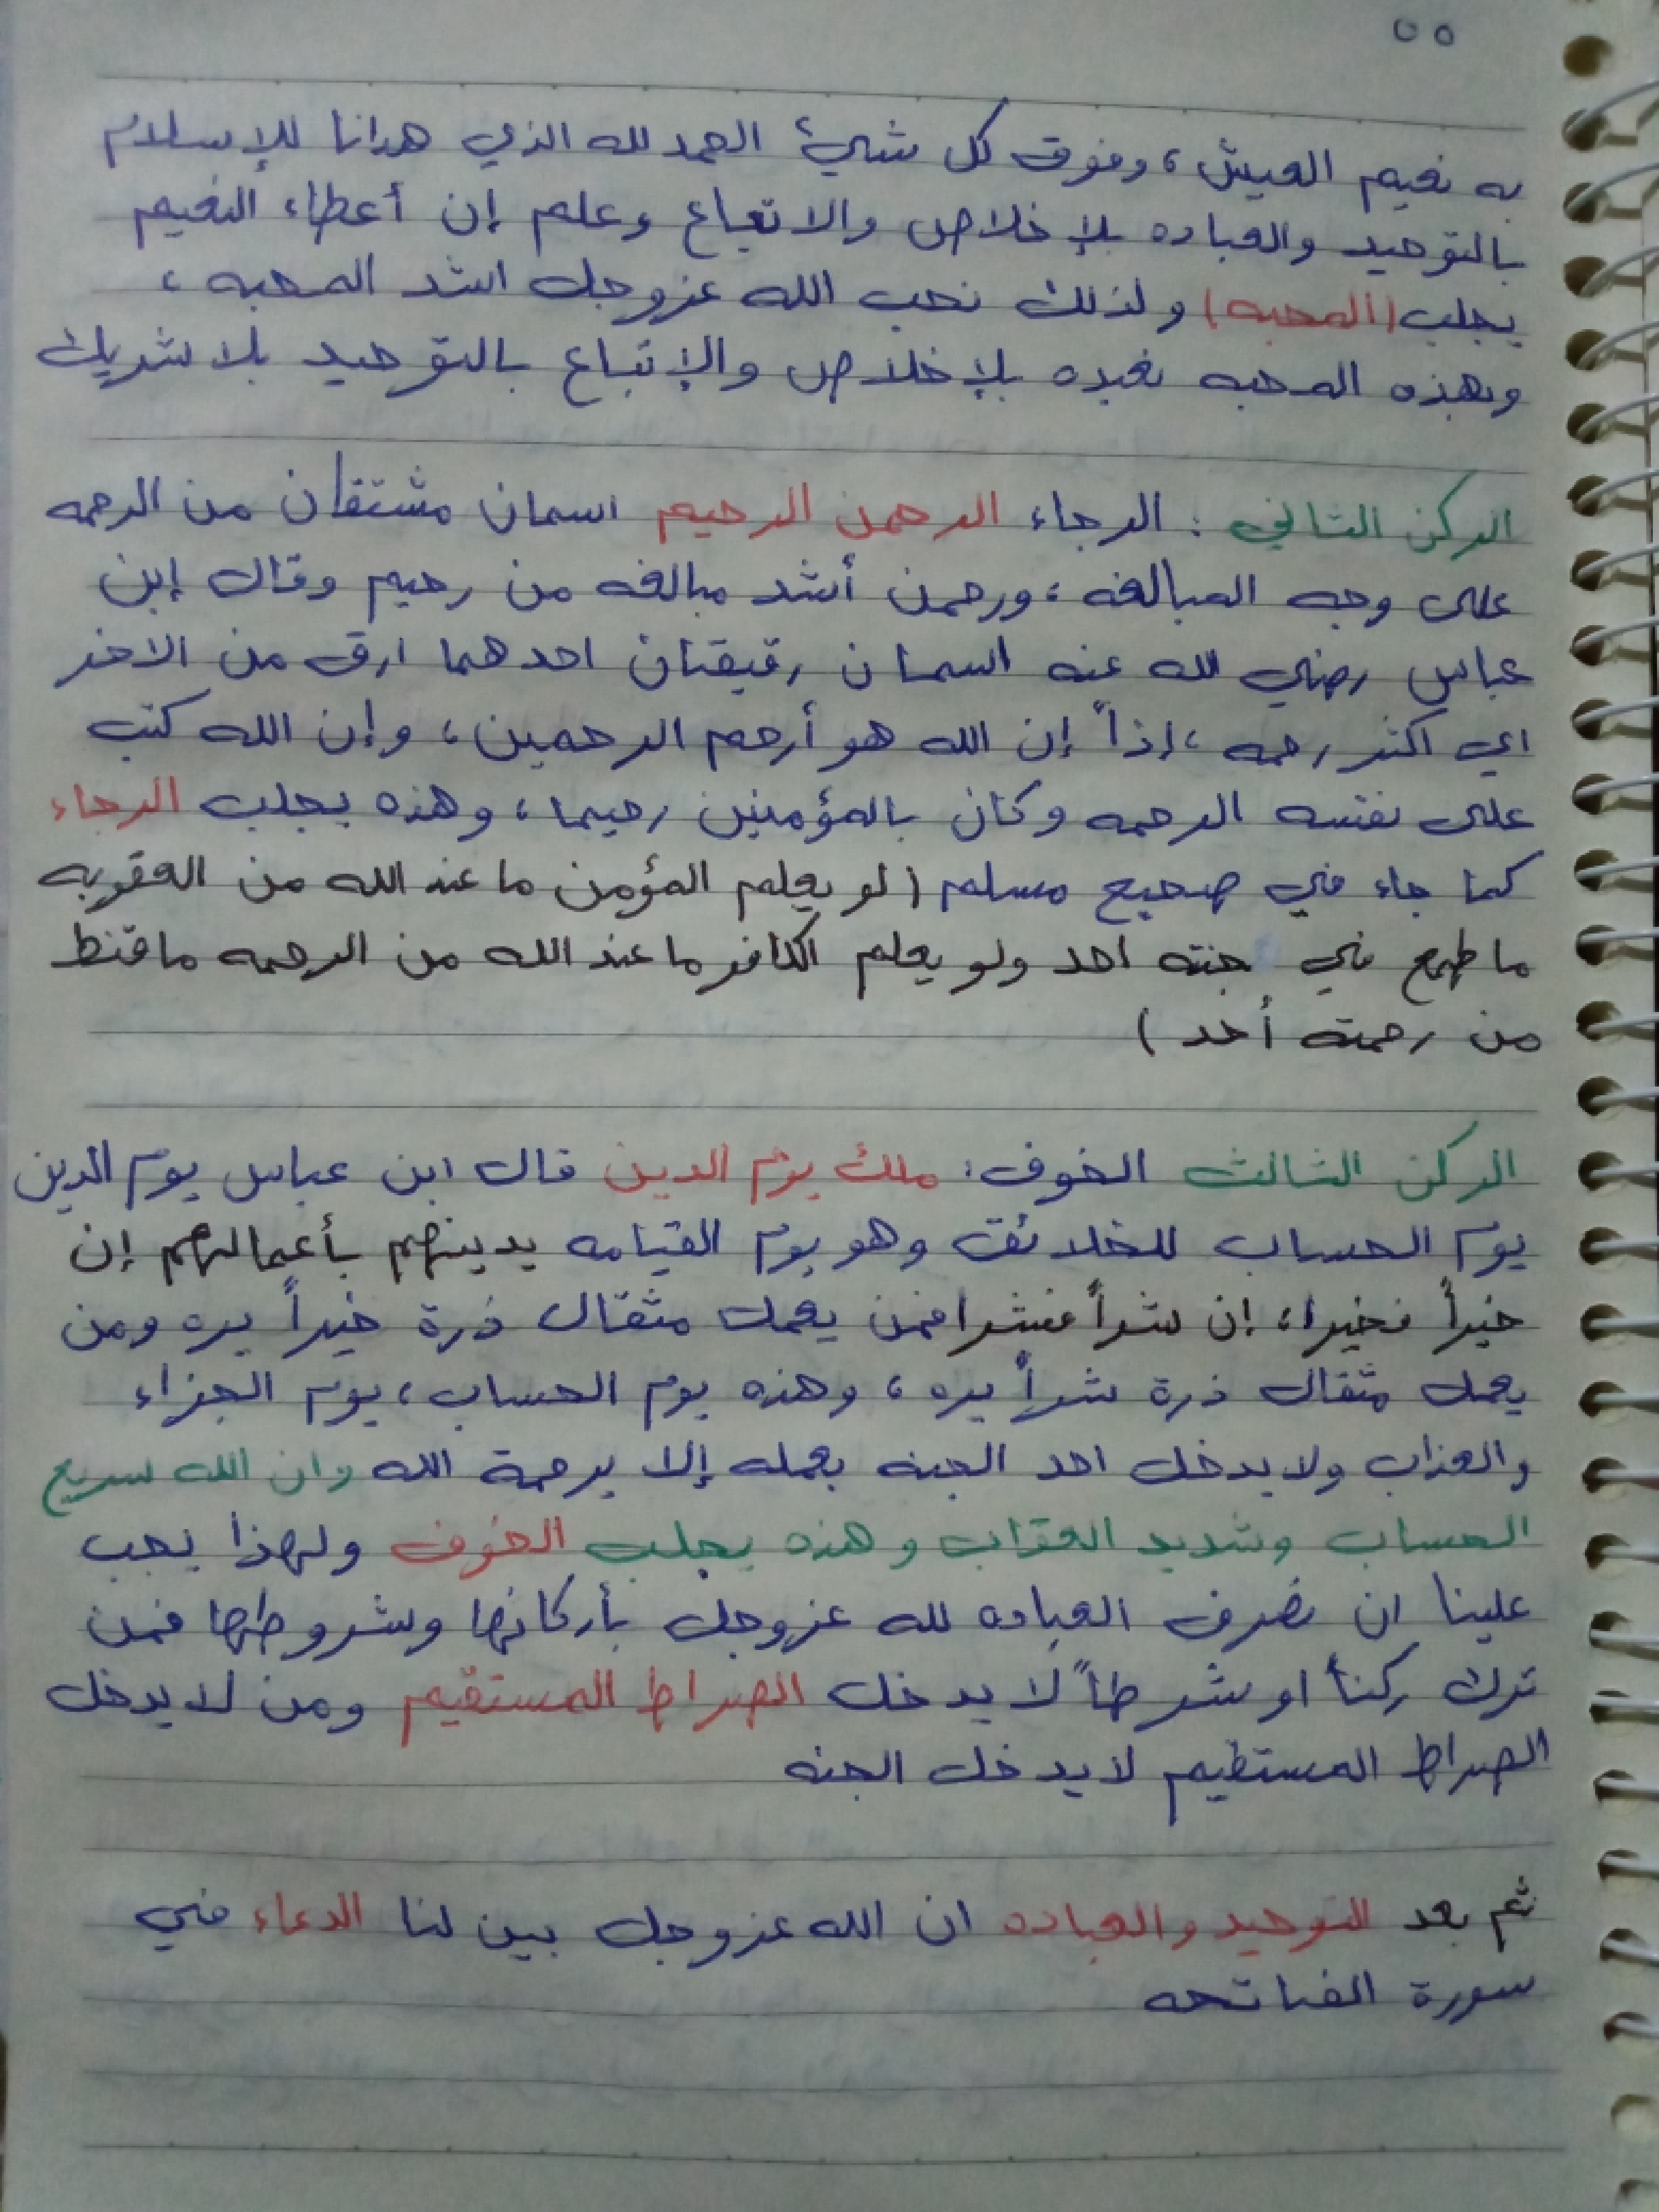 ٥٥
به نعيم العيش، وفوق كل شيئ الحمد لله الذي هدانا للإسلام
بالتوحيد والعباده بلإخلاص والاتباع وعلم إن أعطاء النعيم
يجلب (المحبه) ولذلك نحب الله عزوجل اشد المحبه،
وبهذه المحبه نعبده بلإخلاص والإتباع بالتوحيد بلا شريك
الركن الثاني : الرجاء الرحمن الرحيم اسمان مشتقان من الرحمه
على وجه المبالغه، ورحمن أشد مبالغه من رحيم وقال إبن
عباس رضي الله عنه اسمان رقيقان احدهما ارق من الاخر
اي اكثر رحمه، إذاً إن الله هو أرحم الرحمين، وإن الله كتب
على نفسه الرحمه وكان بالمؤمنين رحيما، وهذه يجلب الرجاء
كما جاء في صحيح مسلم (لو يعلم المؤمن ما عند الله من العقوبه
ما طمع في جنته احد ولو يعلم الكافر ما عند الله من الرحمه ما قنط
من رحمته أحد )
الركن الثالث الخوف: ملك يوم الدين قال ابن عباس يوم الدين
يوم الحساب للخلائق وهو يوم القيامه يدينهم بأعمالهم إن
خيراً فخيرا، إن شراً فشرا فمن يعمل مثقال ذرة خيراً يره ومن
يعمل مثقال ذرة شراً يره، وهذه يوم الحساب، يوم الجزاء
والعذاب ولا يدخل احد الجنه بعمله إلا برحمة الله وان الله سريع
الحساب وشديد العقاب وهذه يجلب الخوف ولهذا يجب
علينا ان نصرف العباده لله عزوجل بأركانها وشروطها فمن
ترك ركناً او شرطاً لا يدخل الصراط المستقيم ومن لا يدخل
الصراط المستقيم لا يدخل الجنه
ثم بعد التوحيد والعباده ان الله عزوجل بين لنا الدعاء في
سورة الفاتحه